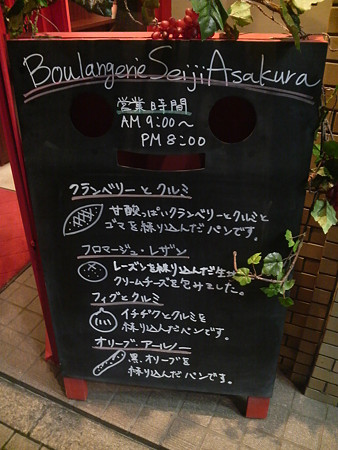 Boulangerie Seiji Asakura
営業時間
AM 9:00～
PM 8:00
クランベリーとクルミ
甘酸っぱいクランベリーとクルミと
ゴマを練り込んだパンです。
フロマージュ・レザン
レーズンを練り込んだ生地で
クリームチーズを包みました。
フィグとクルミ
イチヂクとクルミを
練り込んだパンです。
オリーブ・アールノー
黒オリーブを
練り込んだパンです。